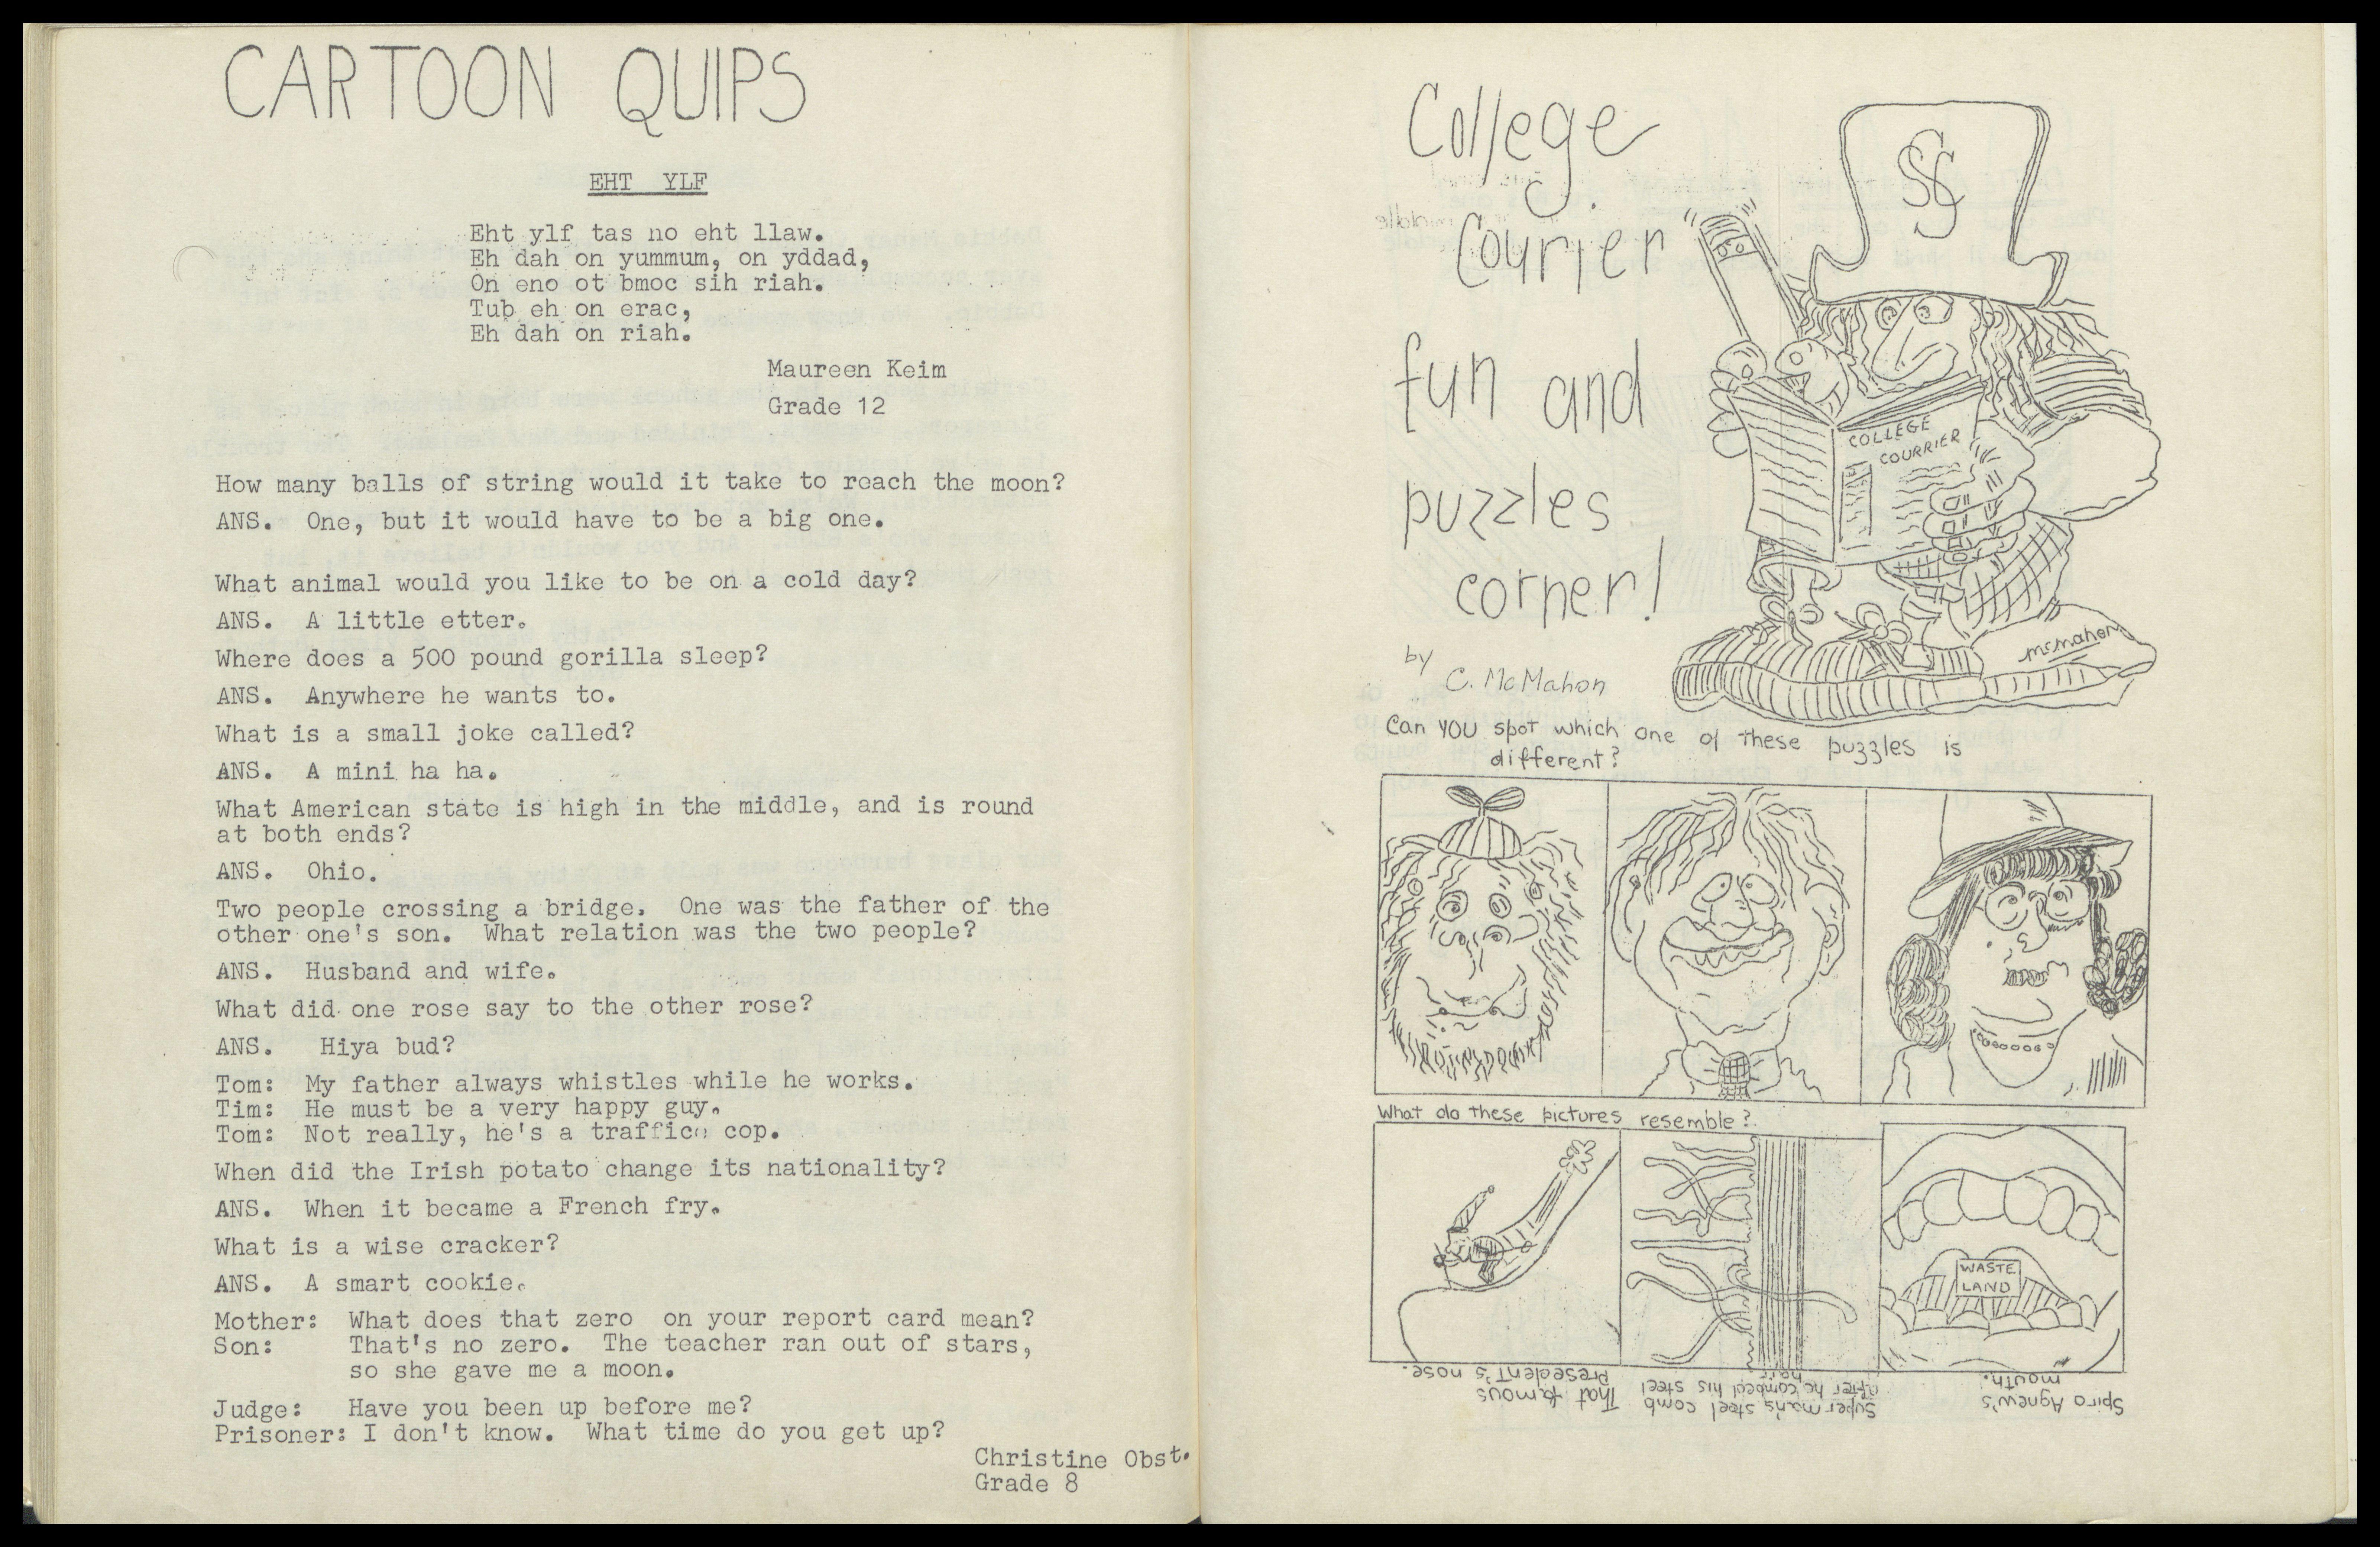 CARTOON QUIPS
EHT YLF
Eht ylf tas no eht llaw.
Eh dah on yummum, on yddad,
On eno ot bmoc sih riah.
Tub eh on erac,
Eh dah on riah.
Maureen Keim
Grade 12
How many balls of string would it take to reach the moon?
ANS. One, but it would have to be a big one.
What animal would you like to be on a cold day?
ANS. A little etter.
Where does a 500 pound gorilla sleep?
ANS. Anywhere he wants to.
What is a small joke called?
ANS. A mini ha ha.
What American state is high in the middle, and is round
at both ends?
ANS. Ohio.
Two people crossing a bridge. One was the father of the
other one's son. What relation was the two people?
ANS. Husband and wife.
What did one rose say to the other rose?
ANS. Hiya bud?
Tom: My father always whistles while he works.
Tim: He must be a very happy guy.
Tom: Not really, he's a traffic cop.
When did the Irish potato change its nationality?
ANS. When it became a French fry.
What is a wise cracker?
ANS. A smart cookie.
Mother: What does that zero on your report card mean?
Son: That's no zero. The teacher ran out of stars,
so she gave me a moon.
Judge: Have you been up before me?
Prisoner: I don't know. What time do you get up?
Christine Obst.
Grade 8
College
Courier
fun and
puzzles
corner!
by
C. McMahon
SSG
COLLEGE
COURRIER
McMahon
Can YOU spot which one of these puzzles is
different?
What do these pictures resemble?
WASTE
LAND
That famous
Presedent's nose.
Superman's steel comb
after he combed his steel
hair
Spiro Agnew's
mouth.